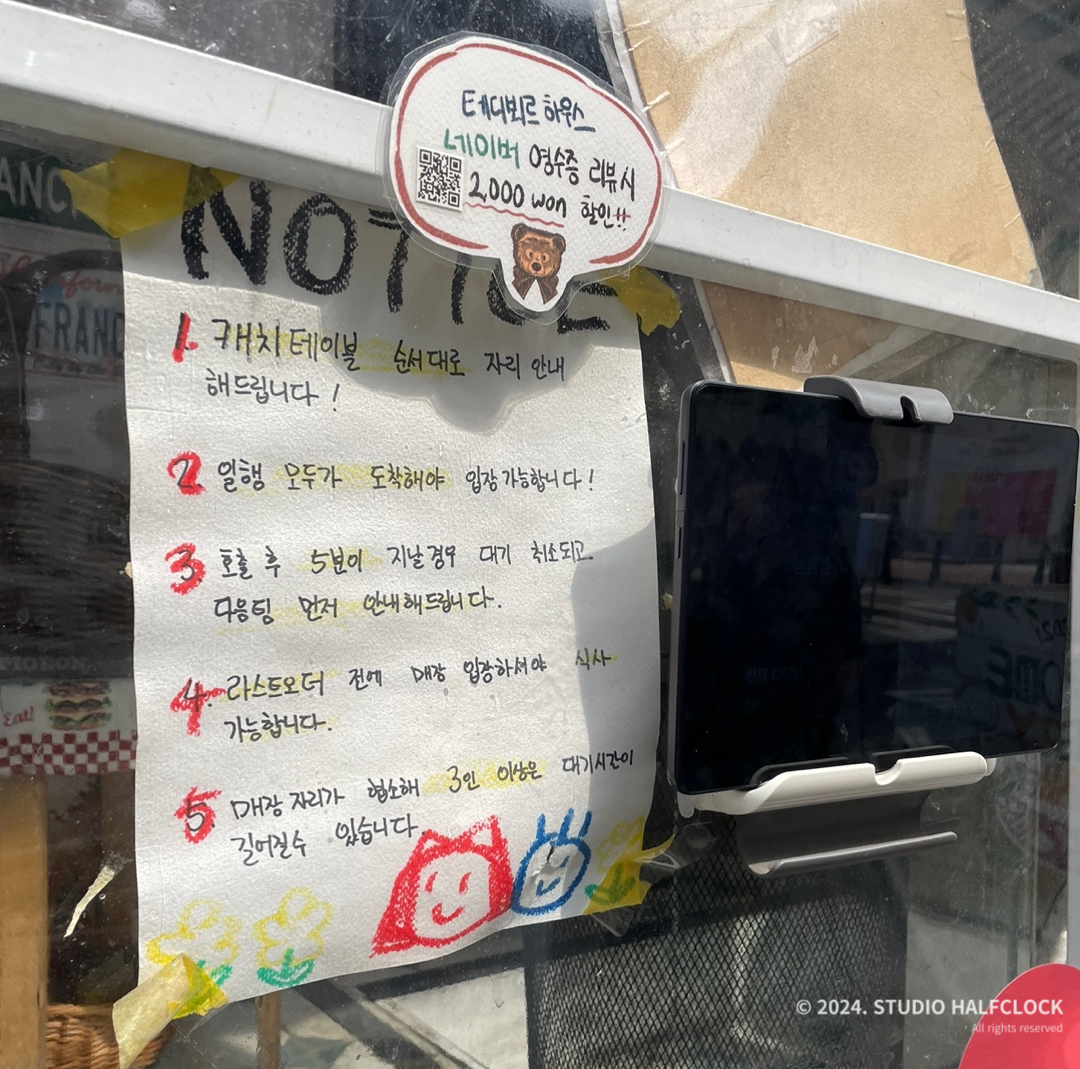 테디뵈르 하우스
네이버 영수증 리뷰 시
2,000 won 할인!!
NOTICE
1. 캐치테이블 순서대로 자리 안내
해드립니다!
2. 일행 모두가 도착해야 입장 가능합니다!
3 호출 후 5분이 지날 경우 대기 취소되고
다음팀 먼저 안내해드립니다.
4. 라스트오더 전에 매장 입장하셔야 식사
가능합니다.
5. 매장 자리가 협소해 3인 이상은 대기시간이
길어질수 있습니다.
FRANC
PIGEON
Eat!
© 2024. STUDIO HALFCLOCK
All rights reserved